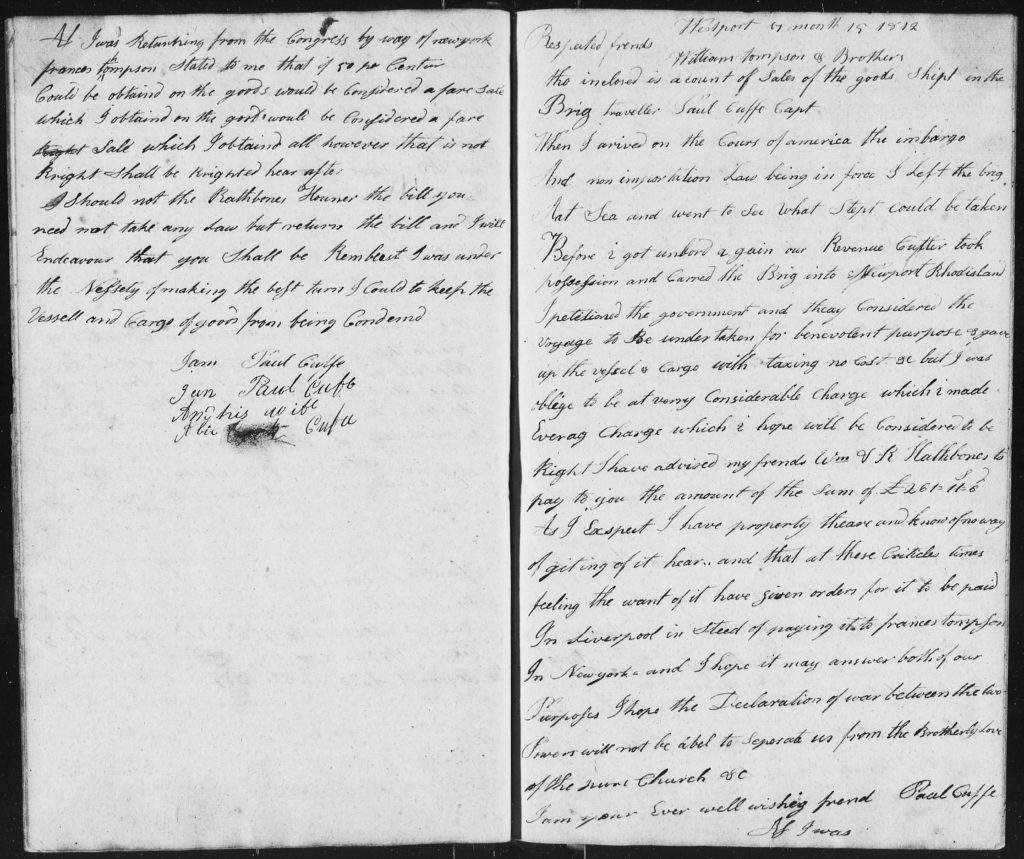 As I was Returning from the Congress by way of newyork
frances tompson Stated to me that if 50 pr Center
Could be obtaind on the goods would be Considered a fare Sale
which I obtaind on the goods would be Considered a fare
Right Sale which I obtaind all however that is not
Kright Shall be Krighted hear after
I Should not the Rathbones Honner the bill you
need not take any Law but return the bill and I will
Endeavour that you Shall be Rembest I was under
the Nessety of making the best turn I Could to keep the
Vessell and Cargo of goods from being Condemd
I am Paul Cuffe
Jun Paul Cuffe
And his wife
Cuffe
Westport 7 month 15 1812
Respected frends
William tompson & Brothers
the inclosed is a count of Sales of the goods Shipt in the
Brig traveller Paul Cuffe Capt
When I arived on the Cours of america the imbargo
And non importation Law being in force I Left the brig
At Sea and went to See What Stept could be taken
Before i got unbord a gain our Revenue Cutter took
possession and Carred the Brig into Newport Rhodisland
I petitioned the government and theay Considered the
voyage to Be undertaken for benevolent purpose & gave
up the vessel & Cargo with taxing no Cost &c but I was
oblige to be at verry Considerable Charge which i made
Everag Charge which i hope will be Considered to be
Right I have advised my frends Wm & R Rathbones to
pay to you the amount of the Sum of £ 261-11-6
As I Exspect I have property theare and know of no way
of giting of it hear.. and that at these Criticle times
feeling the want of it have given orders for it to be paid
In Liverpool in Steed of paying it to frances tompson
In Newyork and I hope it may answer both of our
Purposes I hope the Declaration of war between the two
Powers will not be abel to Seperate us from the Brotherly Love
of the pure Church &c
I am your Ever well wishing frend Paul Cuffe
As I was